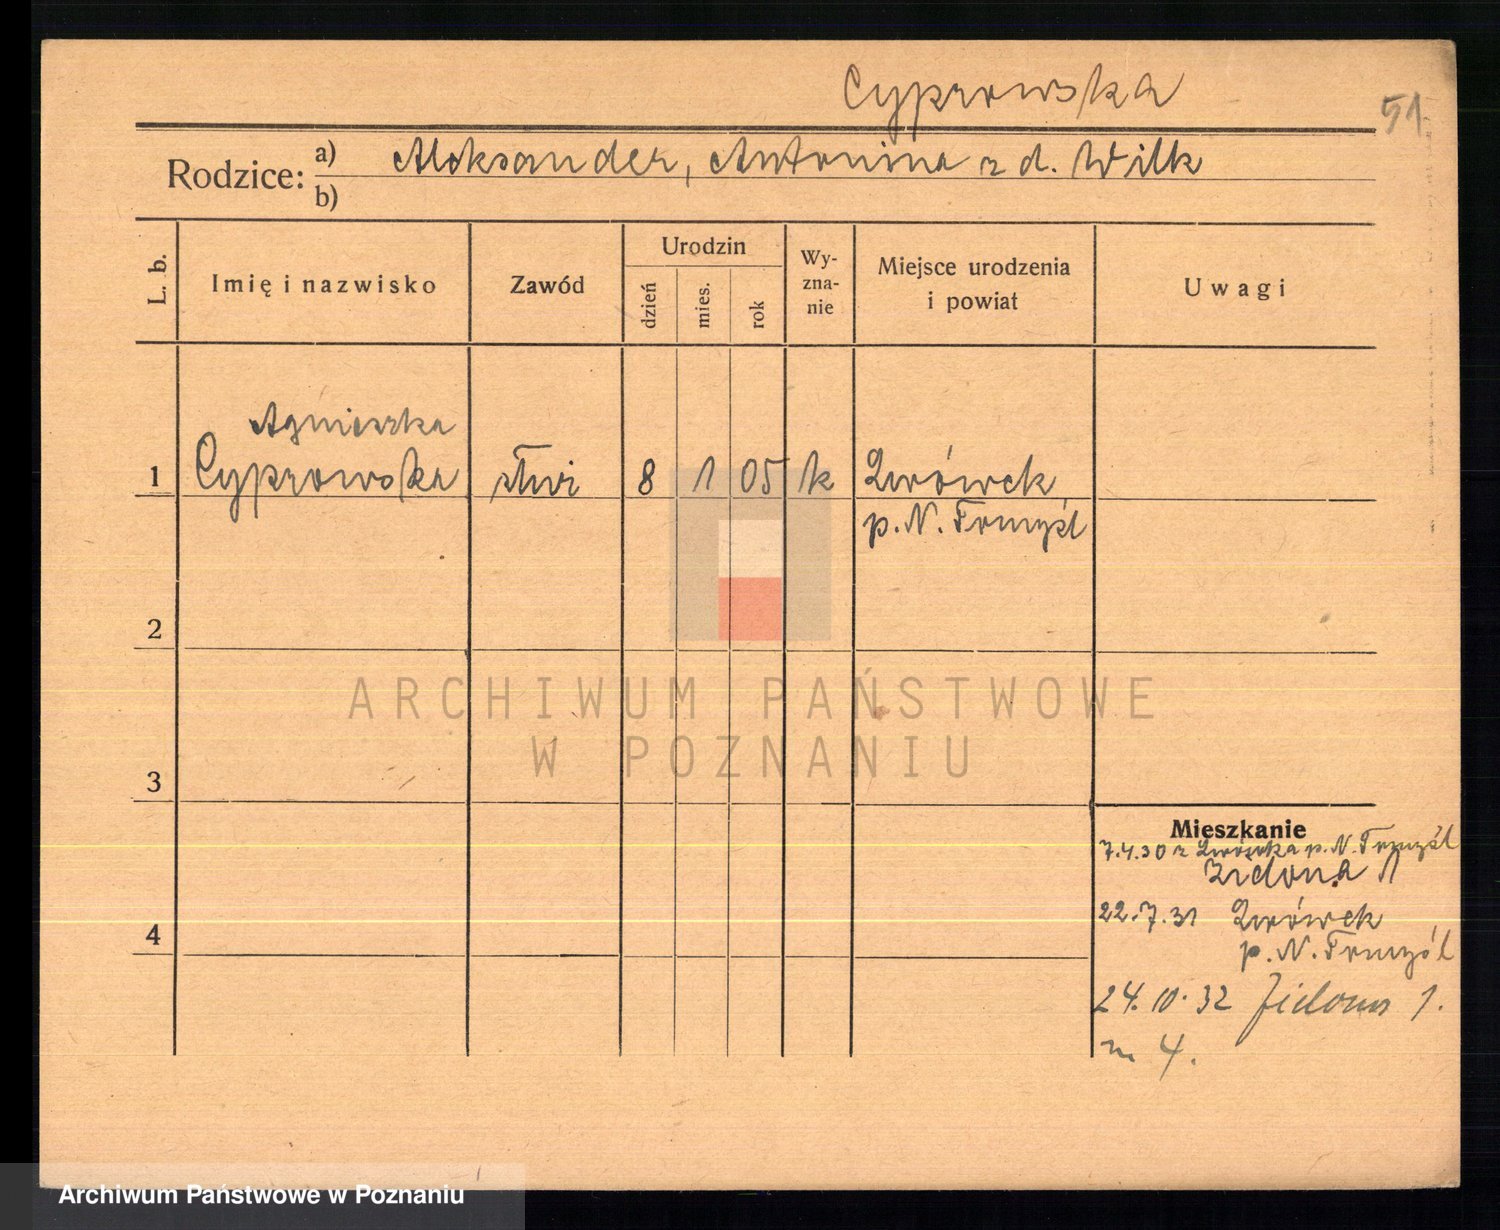 Cyprowska
51
Rodzice: a) Aleksander, Antonina z d. Wilk
b)
L. b.
Imię i nazwisko
Zawód
Urodzin
dzień
mies.
rok
Wy-
zna-
nie
Miejsce urodzenia
i powiat
Uwagi
Agnieszka
1 Cyprowska 8 1 05 k Lwówek
p. N. Tomyśl
2
3
4
ARCHIWUM PAŃSTWOWE
W POZNANIU
Mieszkanie
7.4.30 z Lwówka p. N. Tomyśl
Zielona 1
22.7.31 Lwówek
p. N. Tomyśl
24.10.32 Zielona 1.
m 4.
Archiwum Państwowe w Poznaniu